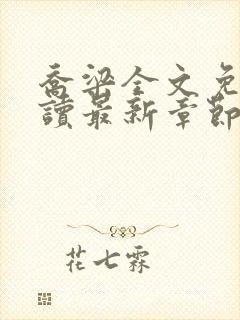 喬梁全文免
讀最新章節
花七霖